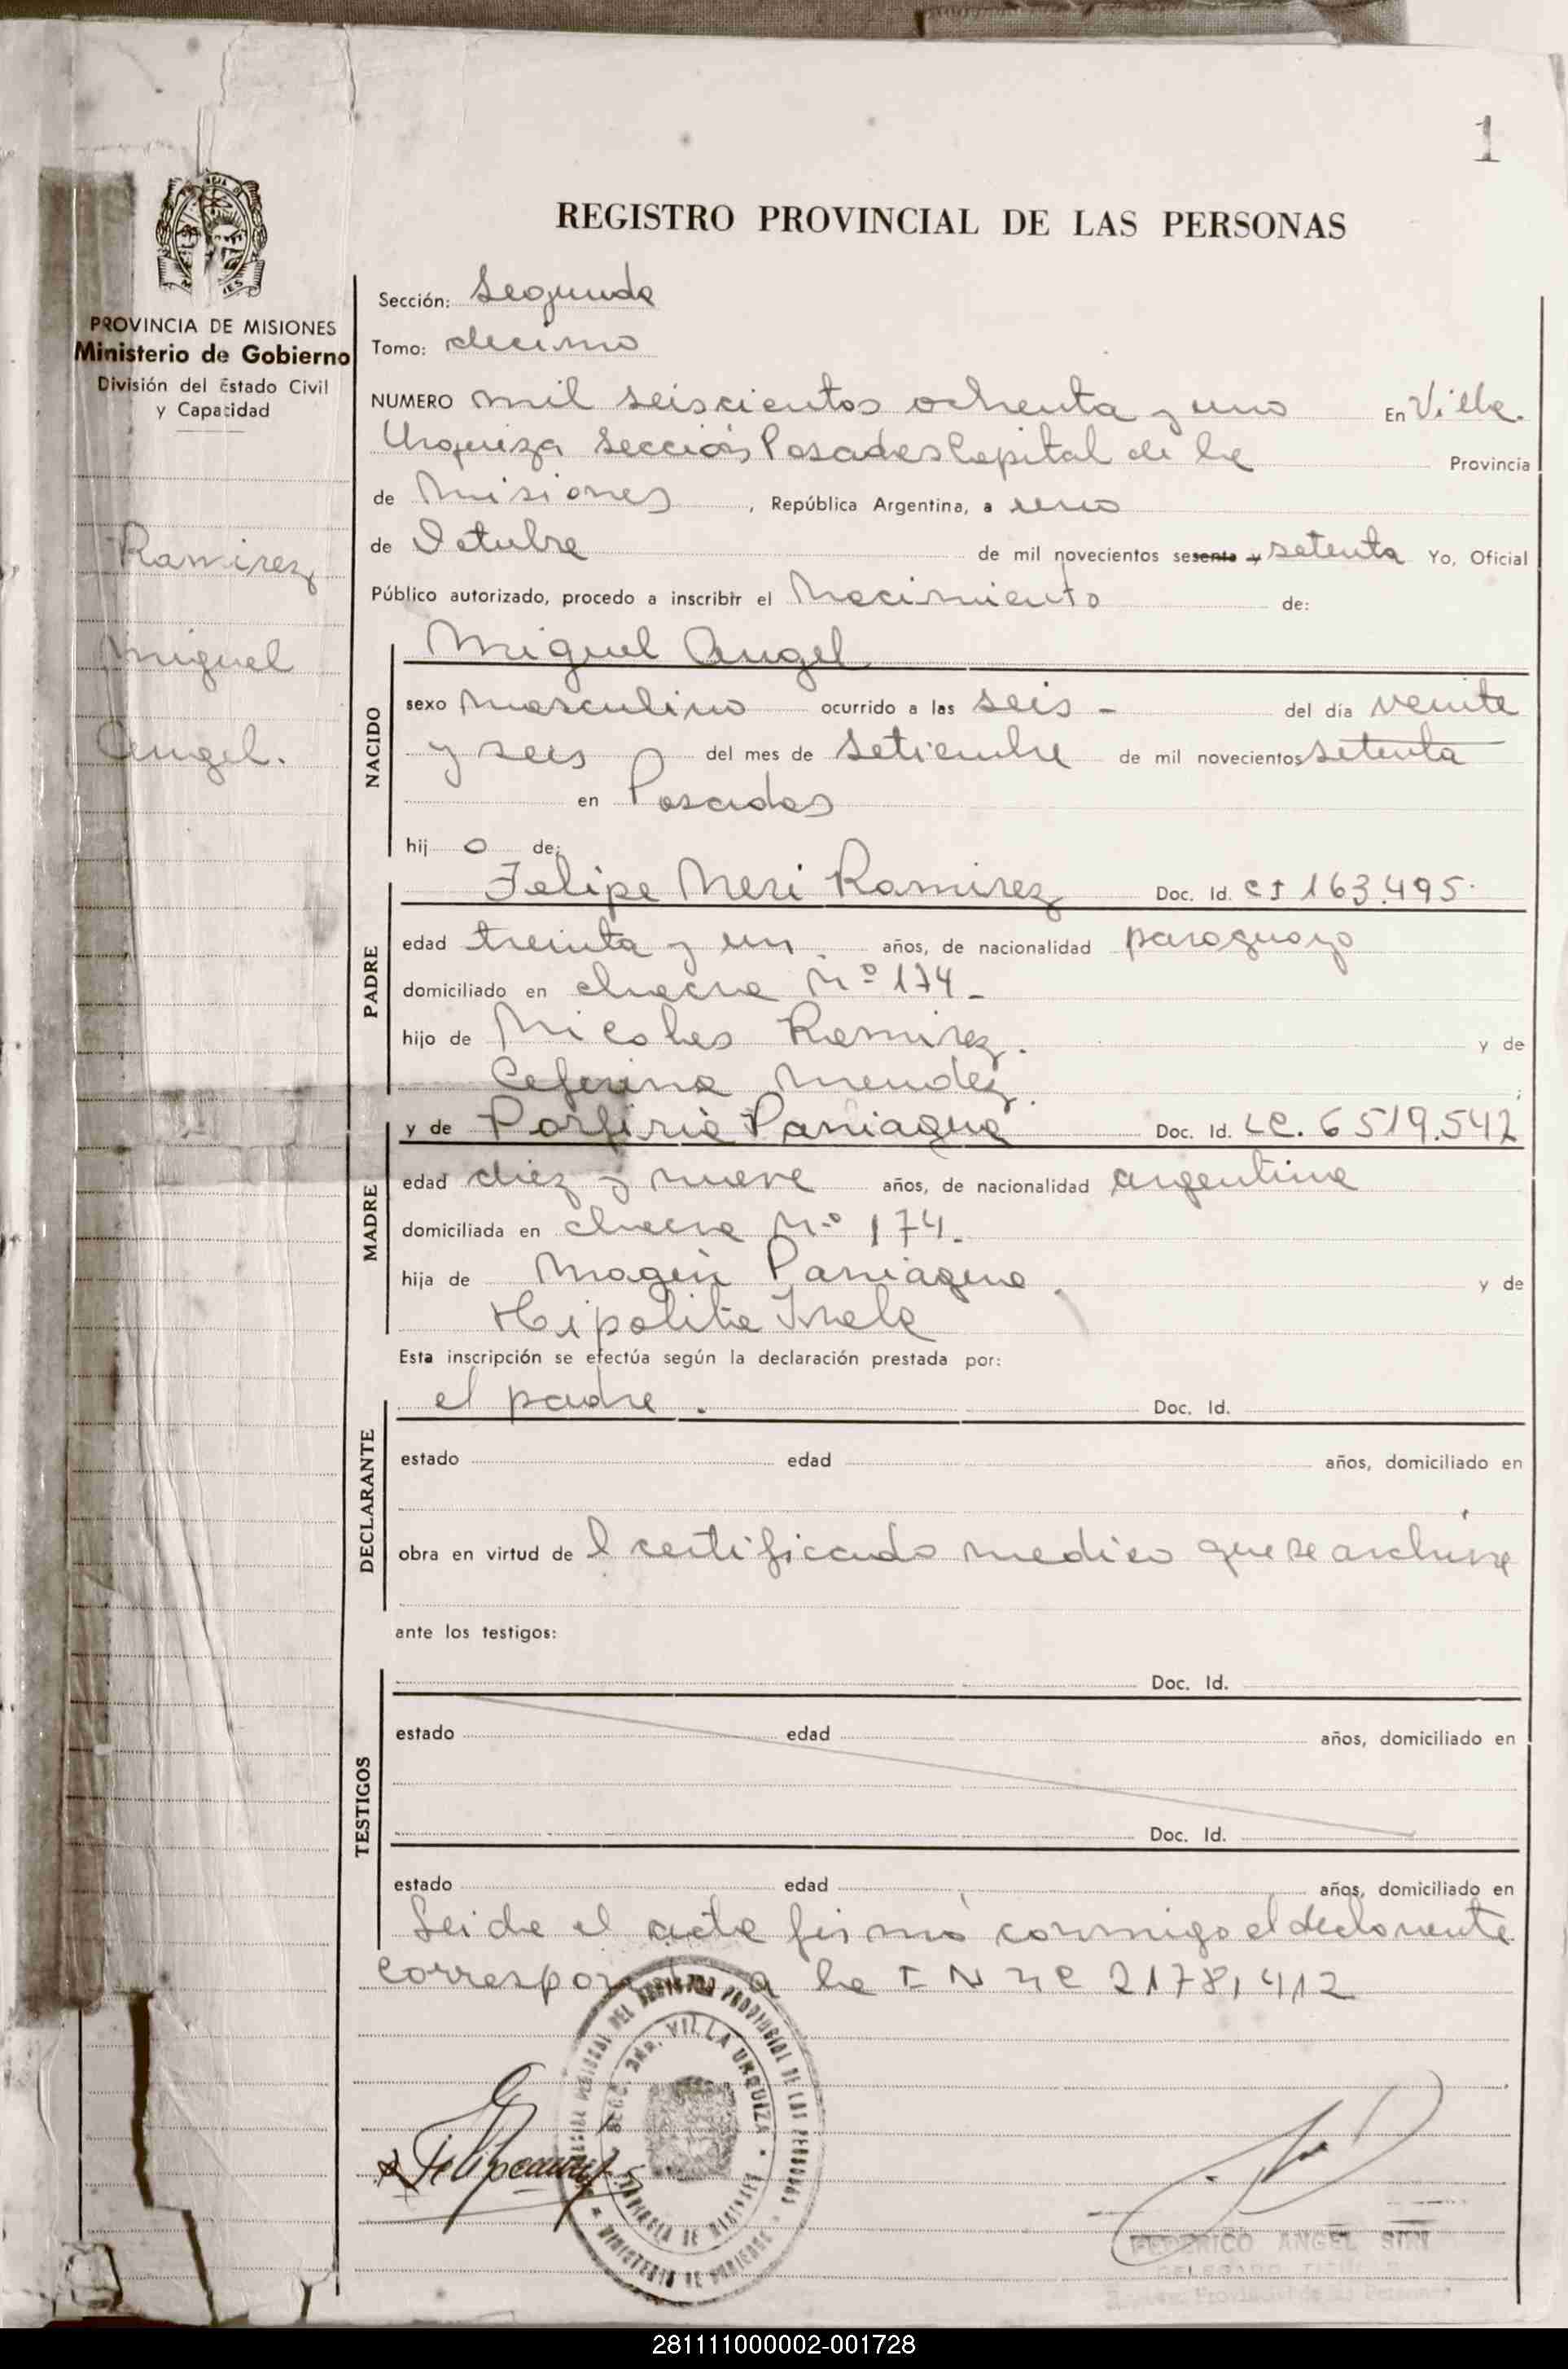 1
REGISTRO PROVINCIAL DE LAS PERSONAS
PROVINCIA DE MISIONES
Ministerio de Gobierno
División del Estado Civil
y Capacidad
Ramirez
Miguel
Angel.
Sección: Segunda
Tomo: decimo
NUMERO mil seiscientos ochenta y uno En Villa
Urquiza Sección Posadas Capital de la Provincia
de Misiones, República Argentina, a uno
de Octubre de mil novecientos sesenta y setenta Yo, Oficial
Público autorizado, procedo a inscribir el Nacimiento de:
NACIDO
Miguel Angel
sexo masculino ocurrido a las seis - del día veinte
y seis del mes de Setiembre de mil novecientos setenta
en Posadas
hij o de:
PADRE
Felipe Neri Ramirez Doc. Id. CI 163.495.
edad treinta y un años, de nacionalidad paraguayo
domiciliado en chacra Nº 174 -
hijo de Nicolas Ramirez. y de
Ceferina Mendez.
MADRE
y de Porfiria Paniagua Doc. Id. LC. 6519.542
edad diez y nueve años, de nacionalidad argentina
domiciliada en chacra Nº 174.
hija de Magin Paniagua. y de
Hipolita
Esta inscripción se efectúa según la declaración prestada por:
DECLARANTE
el padre. Doc. Id.
estado edad años, domiciliado en
obra en virtud de l certificado medico que se archiva
ante los testigos:
TESTIGOS
Doc. Id.
estado edad años, domiciliado en
Doc. Id.
estado edad años, domiciliado en
Leida el acta firmó conmigo el declarante
a la I N 2178,412
SECC. 2da. VILLA URQUIZA
PROVINCIA DE MISIONES
MINISTERIO DE GOBIERNO
FEDERICO ANGEL
DELEGADO
Provincial de las Personas
281111000002-001728